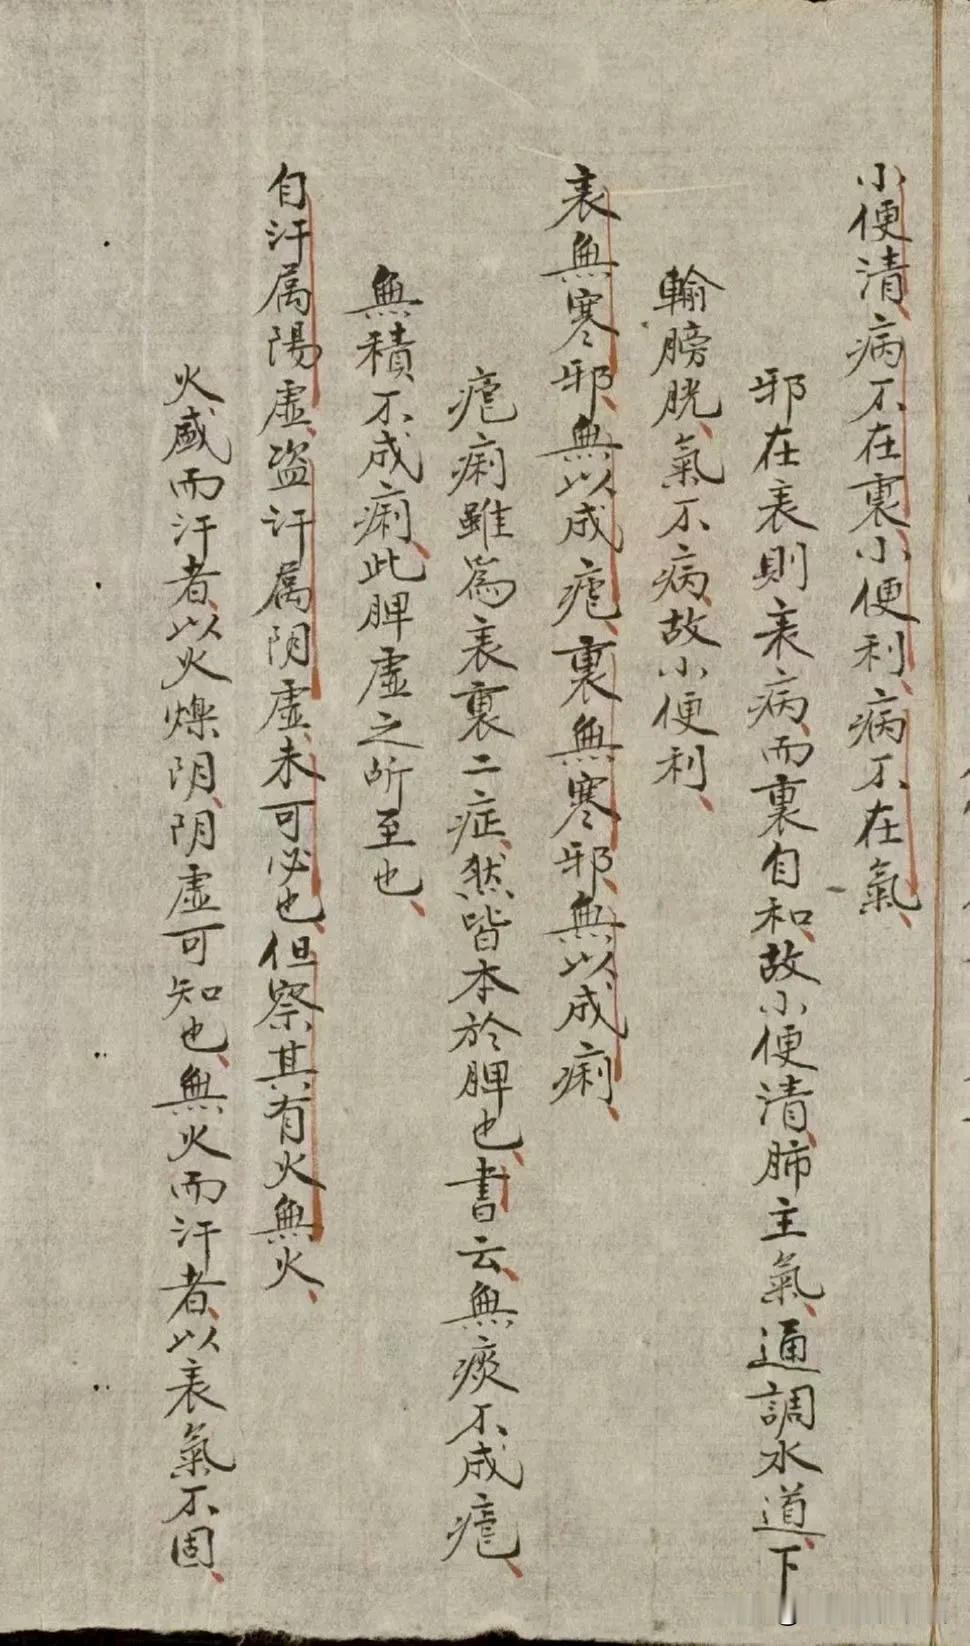 小便清病不在裏小便利病不在氣
邪在表則表病而裏自和故小便清肺主氣通調水道下
輸膀胱氣不病故小便利
表無寒邪無以成瘧裏無寒邪無以成痢
瘧痢雖為表裏二症然皆本於脾也書云無痰不成瘧
無積不成痢此脾虛之所至也
自汗属陽虛盗汗属阴虛未可必也但察其有火無火
火盛而汗者以火爍阴阴虛可知也無火而汗者以表氣不固